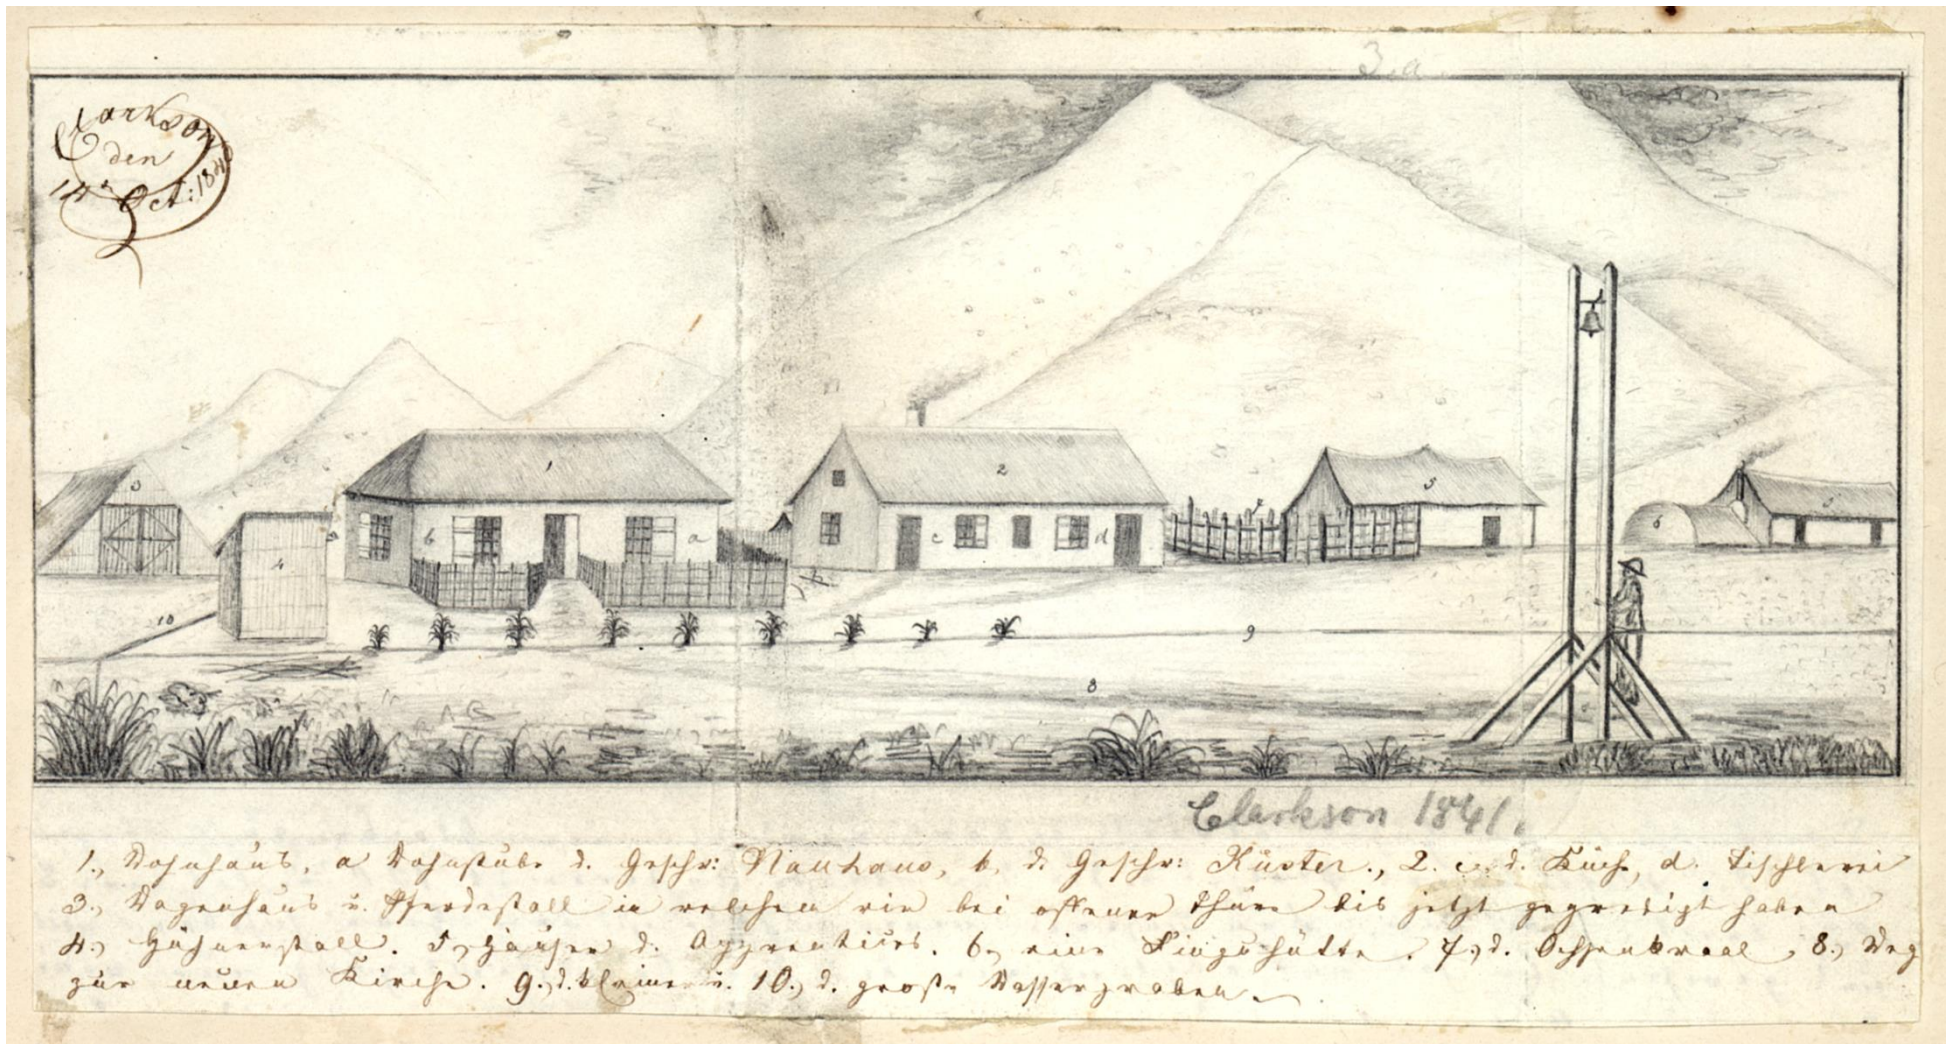 3.a
Clarkson
den
14n Oct: 184
3
1
2
5
5
6
7
4
a
b
a
c
d
10
9
8
Clarkson 1841.
1., Wohnhaus, a Wohnstube d. Geschw: Nauhaus, b, d. Geschw: Küster., 2. c. d. Küche, d. Tischlerei
3., Wagenhaus u. Pferdestall in welchem wir bei offener Thüre bis jetzt gepredigt haben
4., Hühnerstall. 5, Häuser d. Apprentices. 6, eine Fingohütte. 7., d. Ochsenkraal, 8., Weg
zur neuen Kirche. 9., d. kleine u. 10., d. große Wassergraben.